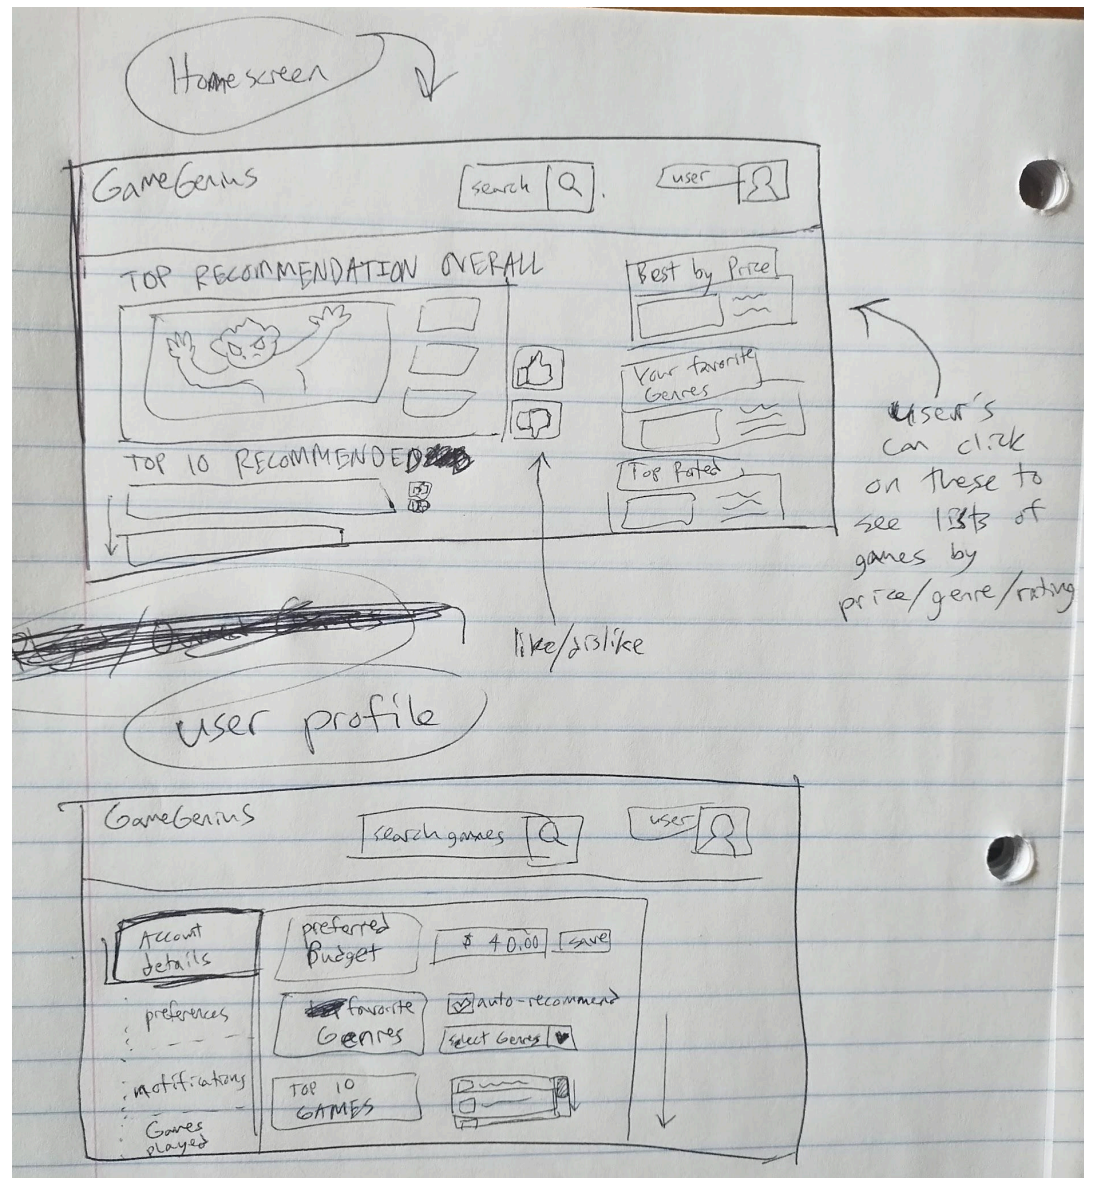 Homescreen
GameGenius
search
user
TOP RECOMMENDATION OVERALL
Best by Price
Your favorite
Genres
TOP 10 RECOMMENDED
Top Rated
user's
can click
on these to
see lists of
games by
price/genre/rating
like/dislike
user profile
GameGenius
search games
user
Account
details
preferences
notifications
Games
played
preferred
Budget
$ 40.00
save
favorite
Genres
auto-recommend
Select Genres
TOP 10
GAMES